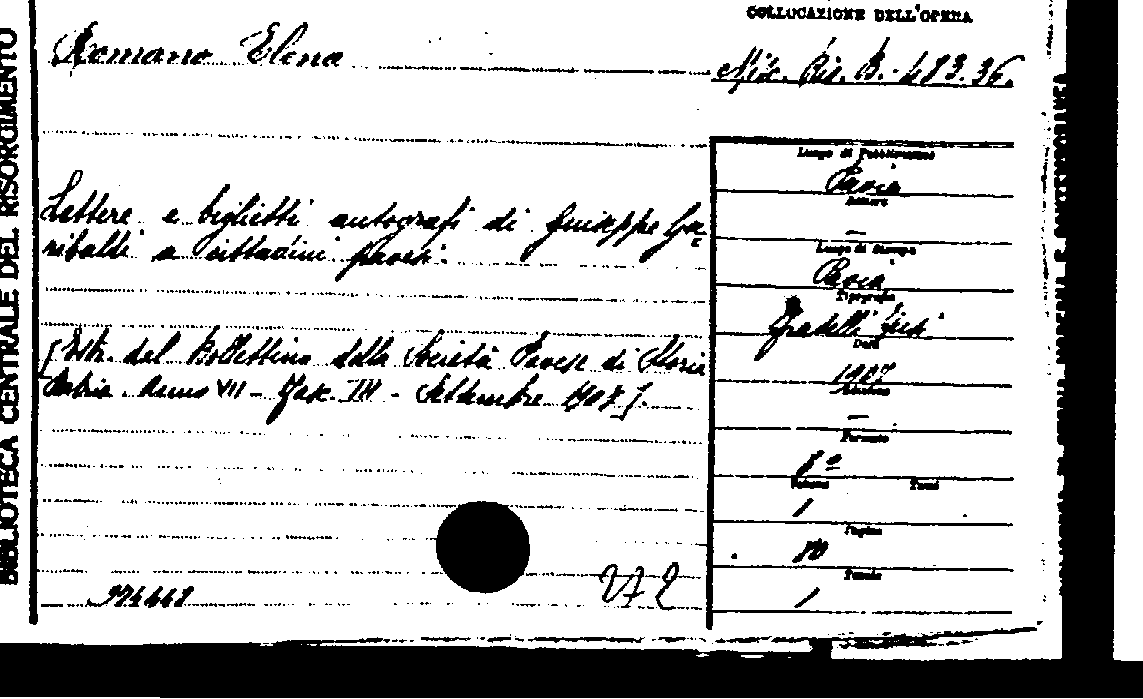 COLLOCAZIONE DELL'OPERA
Romano Elena
Misc. Ris. B. 483.36.
BIBLIOTECA CENTRALE DEL RISORGIMENTO
Lettere e biglietti autografi di Giuseppe Ga=
ribaldi a cittadini pavesi.
[Estr. del Bollettino della Società Pavese di Storia
Patria. Anno VII - Fasc. III - Settembre 1907].
Luogo di Pubblicazione
Pavia
Editore
—
Luogo di Stampa
Pavia
Tipografia
Fratelli Fusi
Data
1907
—
Formato
8º
Volume Tomi
1
Pagine
Tavole
/
272